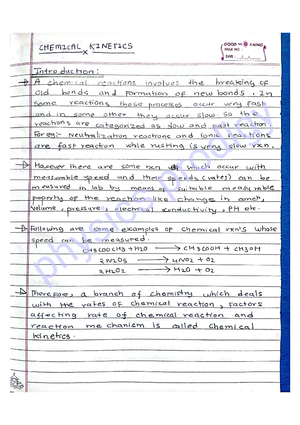 CHEMICAL KINETICS
GOOD MORNING
PAGE NO.
DATE: / /
Introduction:
A chemical reactions involves the breaking of
old bonds and formation of new bonds. In
some reactions, those processes occur very fast
and in some other they occur slow so the
reactions are categorized as slow and fast reaction
For eg:- Neutralization reactions and Ionic reactions
are fast reaction while rusting is very slow rxn.
However there are some rxn which occur with
measurable speed and their speeds (rates) can be
measured in lab by means of suitable measurable
property of the reaction like change in concn,
volume, pressure, electrical conductivity, PH etc.
Following are some examples of chemical rxn's whose
speed can be measured.
CH3COOCH3 + H2O → CH3COOH + CH3OH
2N2O5 → 4NO2 + O2
2H2O2 → H2O + O2
Therefore, a branch of chemistry which deals
with the rates of chemical reaction, factors
affecting rate of chemical reaction and
reaction mechanism is called chemical
kinetics.